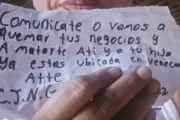 Comunicate o vamos a
quemar tus negocios y
A matarte Ati y a tu hijo
Ya estas ubicada en Venecia
Atte
C.J.N.G